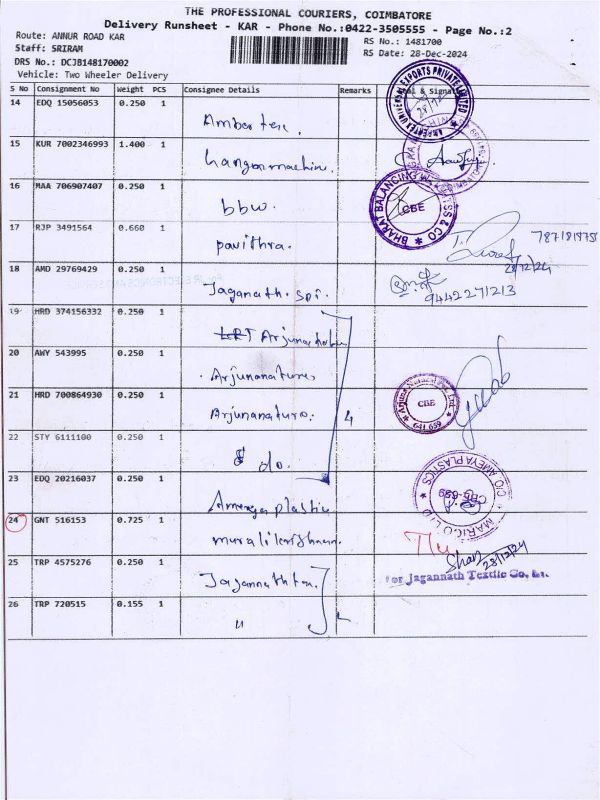 THE PROFESSIONAL COURIERS, COIMBATORE
Delivery Runsheet - KAR - Phone No.:0422-3505555 - Page No.:2
Route: ANNUR ROAD KAR
RS No.: 1481700
Staff: SRIRAM
RS Date: 28-Dec-2024
DRS No.: DCJB148170002
Vehicle: Two Wheeler Delivery
S No Consignment No Weight PCS Consignee Details Remarks & Signature
14 EDQ 15056053 0.250 1
Ambertex.
15 KUR 7002346993 1.400 1
16 MAA 706907407 0.250 1
bbw.
17 RJP 3491564 0.660 1
pavithra.
28/12/24
18 AMD 29769429 0.250 1
Jaganath. spi.
9442271213
19 HRD 374156332 0.250 1
20 AWY 543995 0.250 1
21 HRD 700864930 0.250 1
Arjunanaturo. 4
CBE
641 659
22 STY 6111100 0.250 1
do.
23 EDQ 20216037 0.250 1
C/O AMEYA PLASTICS
MARICO LTD
24 GNT 516153 0.725 1
muralikrishnan.
25 TRP 4575276 0.250 1
28/12/24
For Jagannath Textile Co.
26 TRP 720515 0.155 1
"
BHARAT BALANCING
CBE